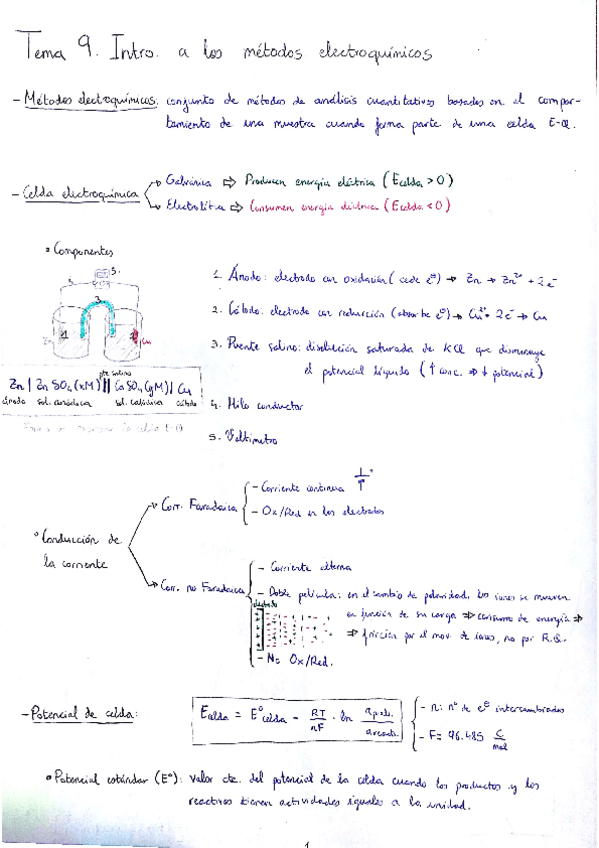 Tema 9. Intro. a los métodos electroquímicos
- Métodos electroquímicos: conjunto de métodos de análisis cuantitativos basados en el compor-
tamiento de una muestra cuando forma parte de una celda E-Q.
- Celda electroquímica
Galvánica ⇨ Producen energía eléctrica (Ecelda > 0)
Electrolítica ⇨ Consumen energía eléctrica (Ecelda < 0)
• Componentes
5.
3.
Zn
Cu
1. Ánodo: electrodo con oxidación (cede e⊖) → Zn → Zn2+ + 2e-
2. Cátodo: electrodo con reducción (absorbe e⊖) → Cu2+ + 2e- → Cu
3. Puente salino: disolución saturada de KCl que disminuye
el potencial líquido (↑ conc. ⇒ ↓ potencial)
4. Hilo conductor
5. Voltímetro
pte salino
Zn | ZnSO4 (xM) || CuSO4 (yM) | Cu
ánodo sol. anódica sol. catódica cátodo
la celda E-Q
• Conducción de
la corriente
Corr. Faradaica
- Corriente continua
- Ox/Red en los electrodos
Corr. no Faradaica
- Corriente alterna
- Doble película: en el cambio de polaridad, los iones se mueven
en función de su carga ⇒ consumo de energía ⇒
⇒ fricción por el mov. de iones, no por R.Q.
electrodo
- No Ox/Red.
- Potencial de celda:
Ecelda = E°celda - RT/nF · ln aprod./areact.
- n: nº de e⊖ intercambiados
- F = 96.485 C/mol
• Potencial estándar (E°): valor cte. del potencial de la celda cuando los productos y los
reactivos tienen actividades iguales a la unidad.
1